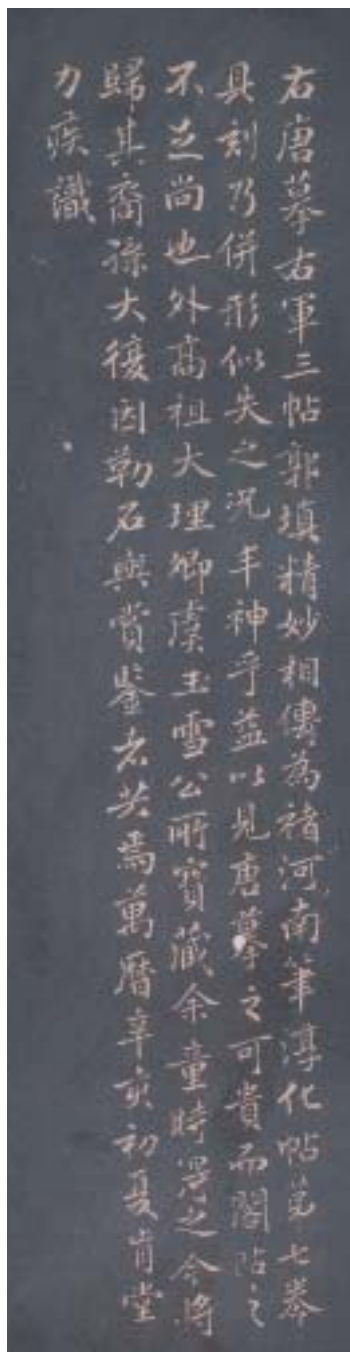 右唐摹右軍三帖郭填精妙相傳為褚河南筆淳化帖第七卷
具刻乃併形似失之况丰神乎益以見唐摹之可貴而閣帖之
不足尚也外高祖大理卿虞玉雪公所寶藏余童時見之今將
歸其裔孫大復因勒石與賞鑒者共焉萬曆辛亥初夏肯堂
力疾識